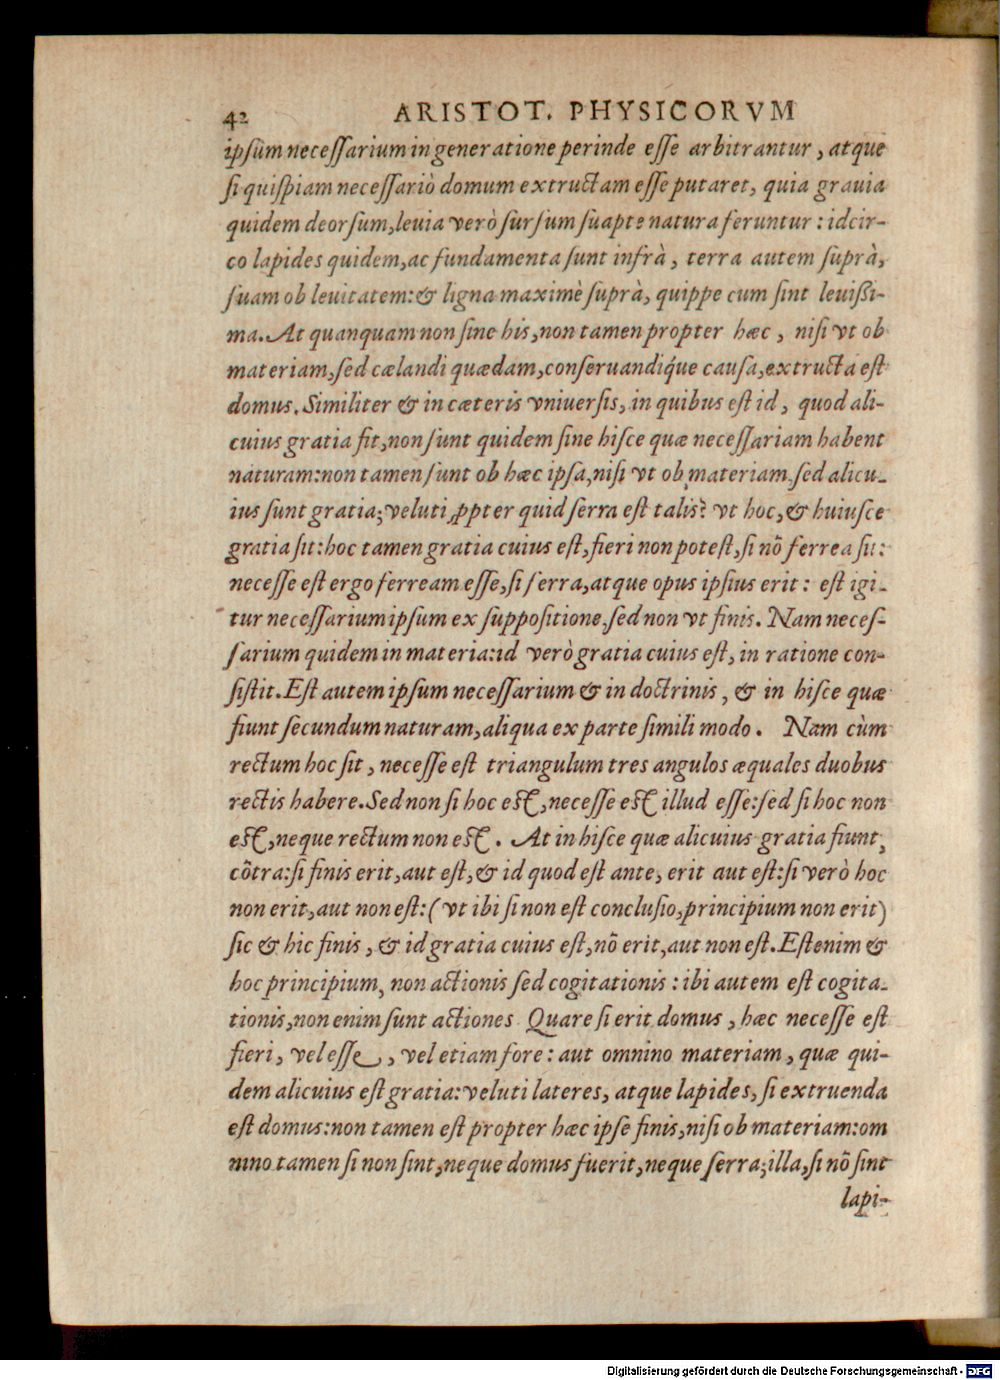 42 ARISTOT. PHYSICORVM
ipsum necessarium in generatione perinde esse arbitrantur, atque
si quispiam necessariò domum extructam esse putaret, quia grauia
quidem deorsum, leuia verò sursum suapte natura feruntur: idcir-
co lapides quidem, ac fundamenta sunt infrà, terra autem suprà,
suam ob leuitatem: & ligna maximè suprà, quippe cum sint leuißi-
ma. At quanquam non sine his, non tamen propter hæc, nisi vt ob
materiam, sed cælandi quædam, conseruandiq́ue causa, extructa est
domus. Similiter & in cæteris vniuersis, in quibus est id, quod ali-
cuius gratia fit, non sunt quidem sine hisce quæ necessariam habent
naturam: non tamen sunt ob hæc ipsa, nisi vt ob materiam, sed alicu-
ius sunt gratia; veluti ꝓpter quid serra est talis? vt hoc, & huiusce
gratia sit: hoc tamen gratia cuius est, fieri non potest, si nõ ferrea sit:
necesse est ergo ferream esse, si serra, atque opus ipsius erit: est igi-
tur necessarium ipsum ex suppositione, sed non vt finis. Nam neces-
sarium quidem in materia: id verò gratia cuius est, in ratione con-
sistit. Est autem ipsum necessarium & in doctrinis, & in hisce quæ
fiunt secundum naturam, aliqua ex parte simili modo. Nam cùm
rectum hoc sit, necesse est triangulum tres angulos æquales duobus
rectis habere. Sed non si hoc est, necesse est illud esse: sed si hoc non
est, neque rectum non est. At in hisce quæ alicuius gratia fiunt,
cõtra: si finis erit, aut est, & id quod est ante, erit aut est: si verò hoc
non erit, aut non est: (vt ibi si non est conclusio, principium non erit)
sic & hic finis, & id gratia cuius est, nõ erit, aut non est. Est enim &
hoc principium, non actionis sed cogitationis: ibi autem est cogita-
tionis, non enim sunt actiones Quare si erit domus, hæc necesse est
fieri, vel esse, vel etiam fore: aut omnino materiam, quæ qui-
dem alicuius est gratia: veluti lateres, atque lapides, si extruenda
est domus: non tamen est propter hæc ipse finis, nisi ob materiam: om
nino tamen si non sint, neque domus fuerit, neque serra; illa, si nõ sint
lapi-
Digitalisierung gefördert durch die Deutsche Forschungsgemeinschaft - DFG